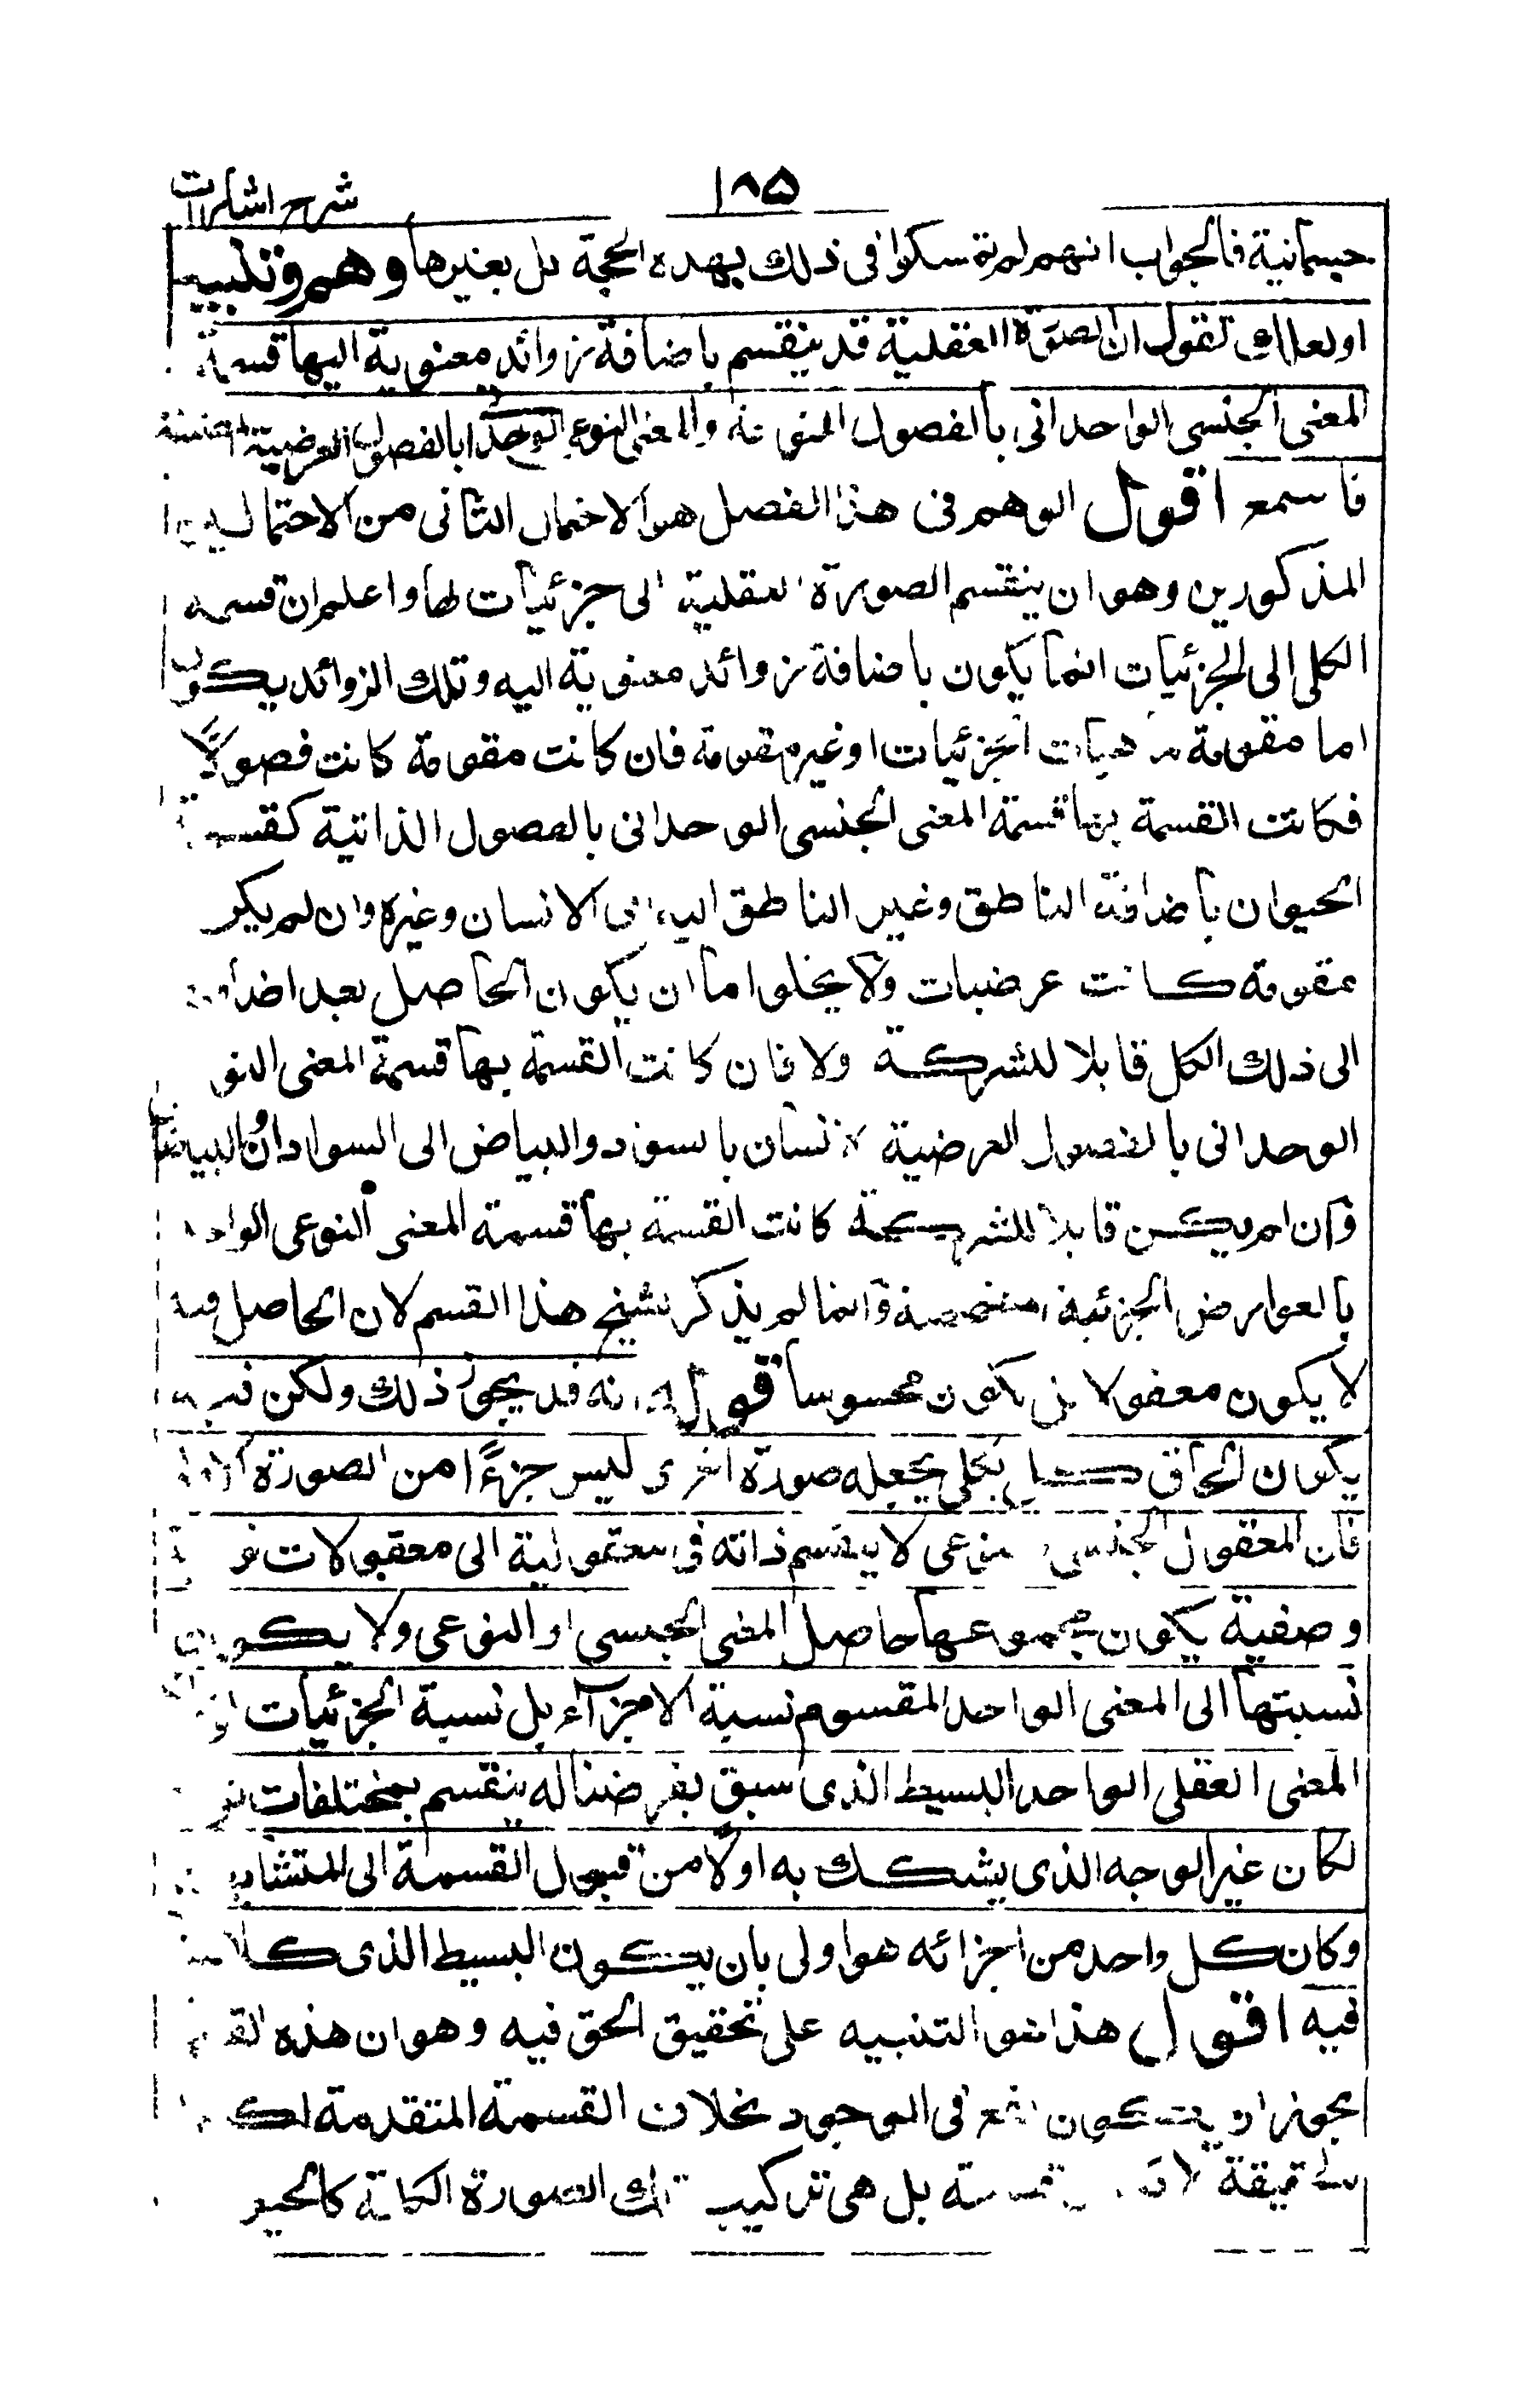 شرح اشارات ١٨٥
جسمانية فالجواب انهم لم يتمسكوا فى ذلك بهذه الحجة بل بغيرها وهم وتنبيه
او لعلك تقول ان الصورة العقلية قد ينقسم باضافة زوائد معنوية اليها قسمة
المعنى الجنسى الواحدانى بالفصول المنوعة والمعنى النوعى الواحد بالفصول العرضية المصنفة
فاسمع اقول الوهم فى هذا الفصل هو الاحتمال الثانى من الاحتمالين
المذكورين وهو ان ينقسم الصورة العقلية الى جزئيات لها واعلم ان قسمة
الكلى الى الجزئيات انما يكون باضافة زوائد معنوية اليه وتلك الزوائد يكون
اما مقومة الجزئيات او غير مقومة فان كانت مقومة كانت فصولًا
فكانت القسمة بها قسمة المعنى الجنسى الوحدانى بالفصول الذاتية كقسمة
الحيوان باضافة الناطق وغير الناطق اليه الى الانسان وغيره وان لم يكن
مقومة كانت عرضيات ولا يخلوا ما ان يكون الحاصل بعد اضا
الى ذلك الكل قابلا للشركة ولا فان كانت القسمة بها قسمة المعنى النو
الوحدانى بالفصول العرضية كانسان بالسواد والبياض الى السودان والبيضان
وان لم يكن قابلا للشركة كانت القسمة بها قسمة المعنى النوعى الواحد
بالعوارض الجزئية المشخصة وانما لم يذكر الشيخ هذا القسم لان الحاصل منه
لا يكون معقولا بل يكون محسوسا قوله انه قد يجوز ذلك ولكن فيه
يكون الحاق كلى بكلى يجعله صورة اخرى ليس جزءًا من الصورة الاولى
فان المعقول الجنسى النوعى لا ينقسم ذاته فى معقوليته الى معقولات نو
وصنفية يكون مجموعها حاصل المعنى الجنسى او النوعى ولا يكون
نسبتها الى المعنى الواحد المقسوم نسبة الاجزآء بل نسبة الجزئيات
المعنى العقلى الواحد البسيط الذى سبق بفرضنا له ينقسم بمختلفات
لكان غير الوجه الذى يشكك به اولًا من قبول القسمة الى المتشابه
وكان كل واحد من اجزائه هو اولى بان يكون البسيط الذى كلامنا
فيه اقول هذا هو التنبيه على تحقيق الحق فيه وهو ان هذه القسمة
يجوز ان يكون تقع فى الوجود بخلاف القسمة المتقدمة
بل هى تركيب تلك الصورة الكلية كالحيو